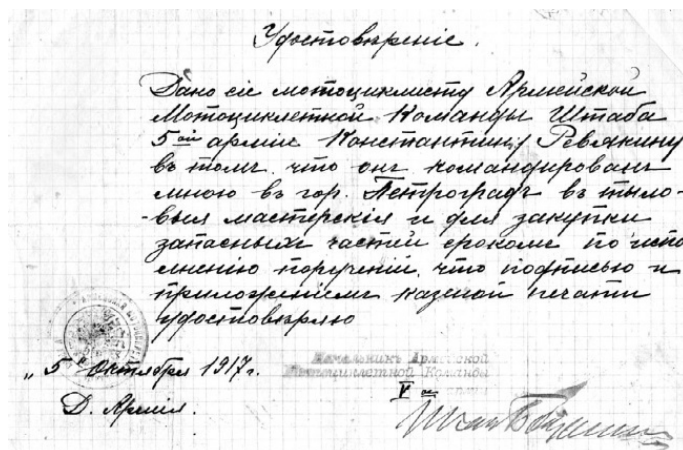 Удостовѣреніе.
Дано сіе мотоциклисту Армейской
Мотоциклетной Команды Штаба
5ой арміи Константину Ревякину
въ томъ, что онъ командированъ
мною въ гор. Петроградъ въ тыло-
-выя мастерскія и для закупки
запасныхъ частей срокомъ по испо
лненію порученій, что подписью и
приложеніемъ казеной печати
удостовѣряю
„5 Октября 1917г.
Д. Армія.
Начальникъ Армейской
Мотоциклетной Команды
V ой арміи